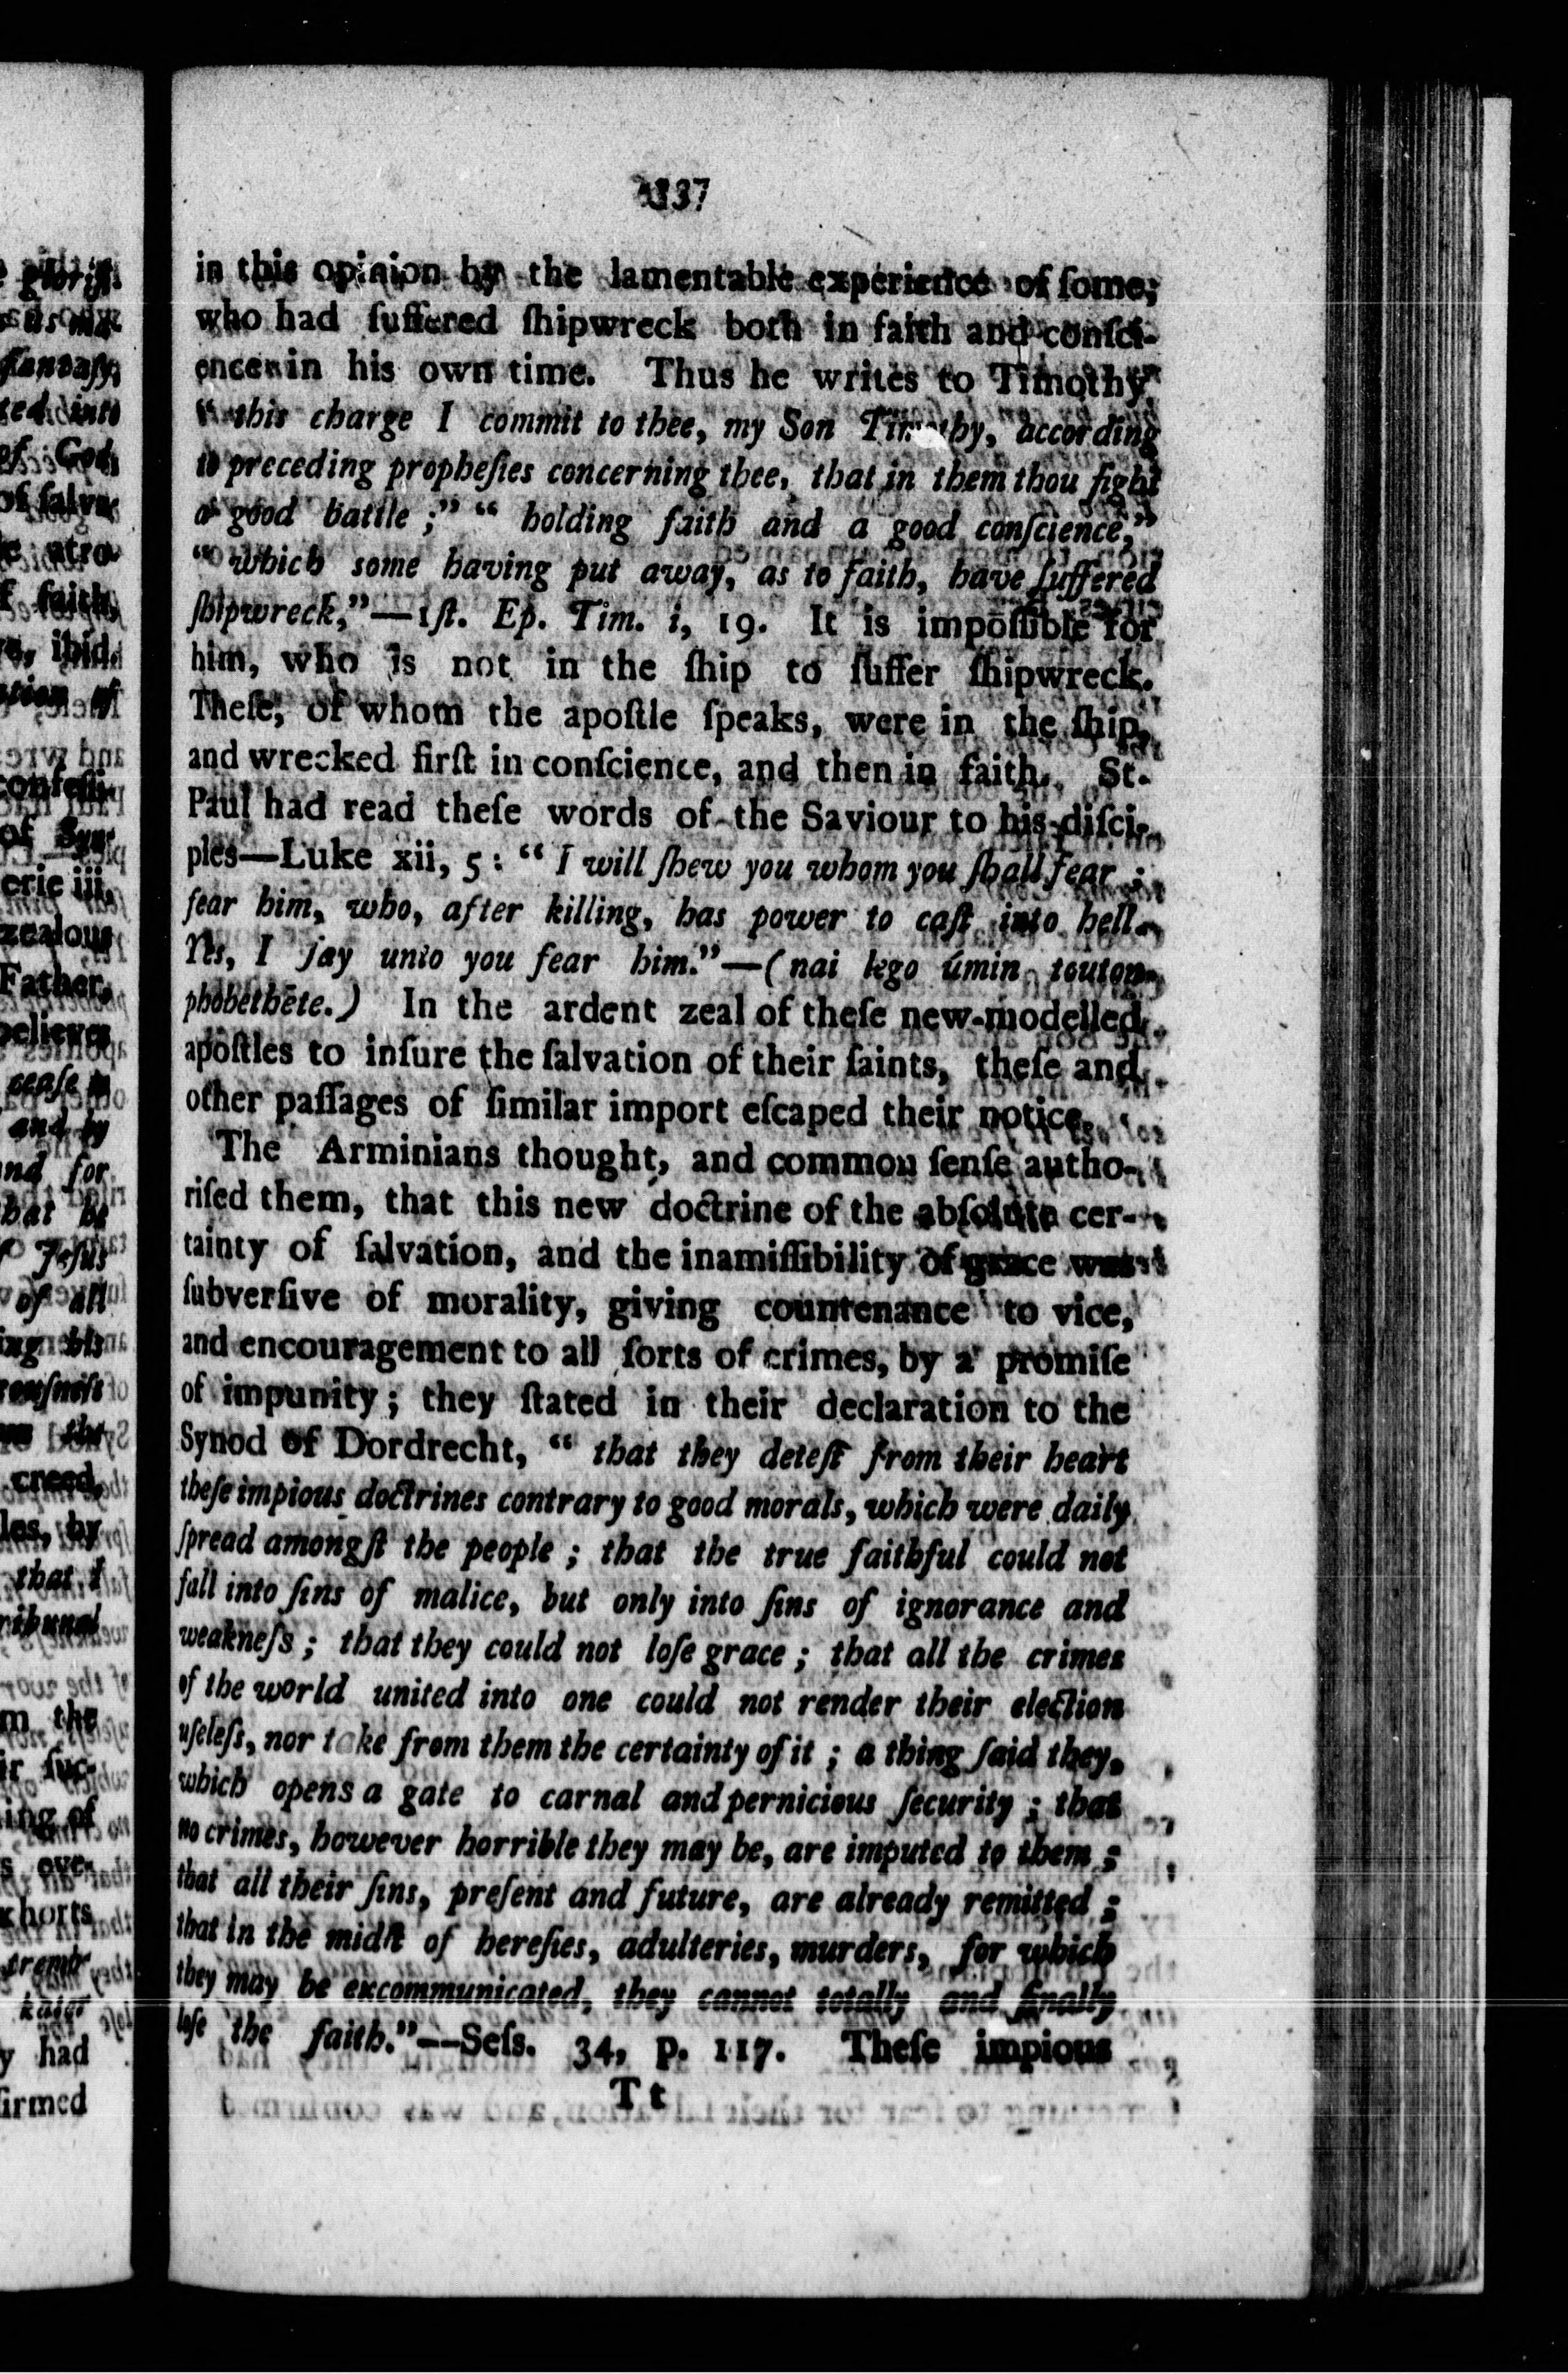 337
in this opinion by the lamentable experience of ſome,
who had ſuffered ſhipwreck both in faith and conſci-
ence in his own time. Thus he writes to Timothy
"this charge I commit to thee, my Son Timothy, according
to preceding propheſies concerning thee, that in them thou fight
a good battle;" "holding faith and a good conſcience,"
"which some having put away, as to faith, have ſuffered
ſhipwreck,"—1ſt. Ep. Tim. i, 19. It is impoſſible for
him, who is not in the ſhip to ſuffer ſhipwreck.
Theſe, of whom the apoſtle ſpeaks, were in the ſhip,
and wrecked firſt in conſcience, and then in faith. St.
Paul had read theſe words of the Saviour to his diſci-
ples—Luke xii, 5: "I will ſhew you whom you ſhall fear;
fear him, who, after killing, has power to caſt into hell.
Yes, I ſay unto you fear him."—(nai lego úmin touton
phobethēte.) In the ardent zeal of theſe new-modelled
apoſtles to inſure the ſalvation of their ſaints, theſe and
other paſſages of ſimilar import eſcaped their notice.
The Arminians thought, and common ſenſe autho-
riſed them, that this new doctrine of the abſolute cer-
tainty of ſalvation, and the inamiſſibility of grace was
ſubverſive of morality, giving countenance to vice,
and encouragement to all ſorts of crimes, by a promiſe
of impunity; they ſtated in their declaration to the
Synod of Dordrecht, "that they deteſt from their heart
theſe impious doctrines contrary to good morals, which were daily
ſpread amongſt the people; that the true faithful could not
fall into ſins of malice, but only into ſins of ignorance and
weakneſs; that they could not loſe grace; that all the crimes
of the world united into one could not render their election
uſeleſs, nor take from them the certainty of it; a thing ſaid they,
which opens a gate to carnal and pernicious ſecurity; that
no crimes, however horrible they may be, are imputed to them;
that all their ſins, preſent and future, are already remitted;
that in the midſt of hereſies, adulteries, murders, for which
they may be excommunicated, they cannot totally and finally
loſe the faith."—Seſs. 34, p. 117. Theſe impious
T t